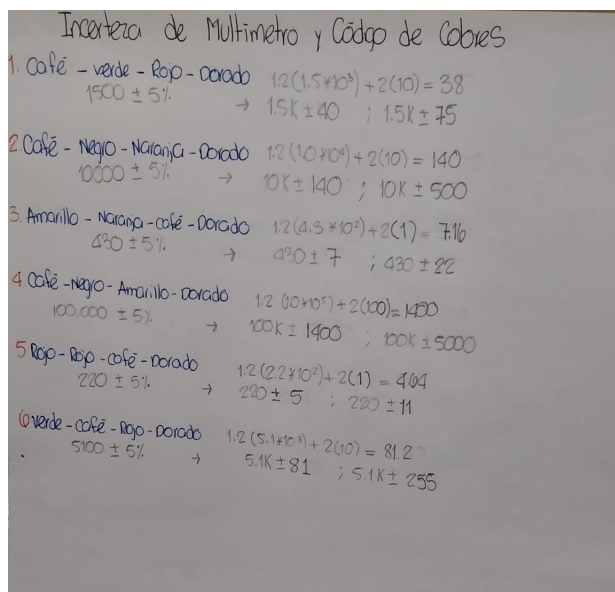 Incerteza de Multimetro y Código de Colores
1. Café - verde - Rojo - Dorado 1.2(1.5*10³) + 2(10) = 38
1500 ± 5% → 1.5K ± 40 ; 1.5K ± 75
2. Café - Negro - Naranja - Dorado 1.2(1.0*10⁴) + 2(10) = 140
10000 ± 5% → 10K ± 140 ; 10K ± 500
3. Amarillo - Naranja - café - Dorado 1.2(4.3*10²) + 2(1) = 7.16
430 ± 5% → 430 ± 7 ; 430 ± 22
4. Café - Negro - Amarillo - Dorado 1.2 (10*10⁵) + 2(100) = 1400
100.000 ± 5% → 100K ± 1400 ; 100K ± 5000
5 Rojo - Rojo - café - Dorado 1.2(2.2*10²) + 2(1) = 4.64
220 ± 5% → 220 ± 5 ; 220 ± 11
6 verde - café - Rojo - Dorado 1.2(5.1*10³) + 2(10) = 81.2
5100 ± 5% → 5.1K ± 81 ; 5.1K ± 255